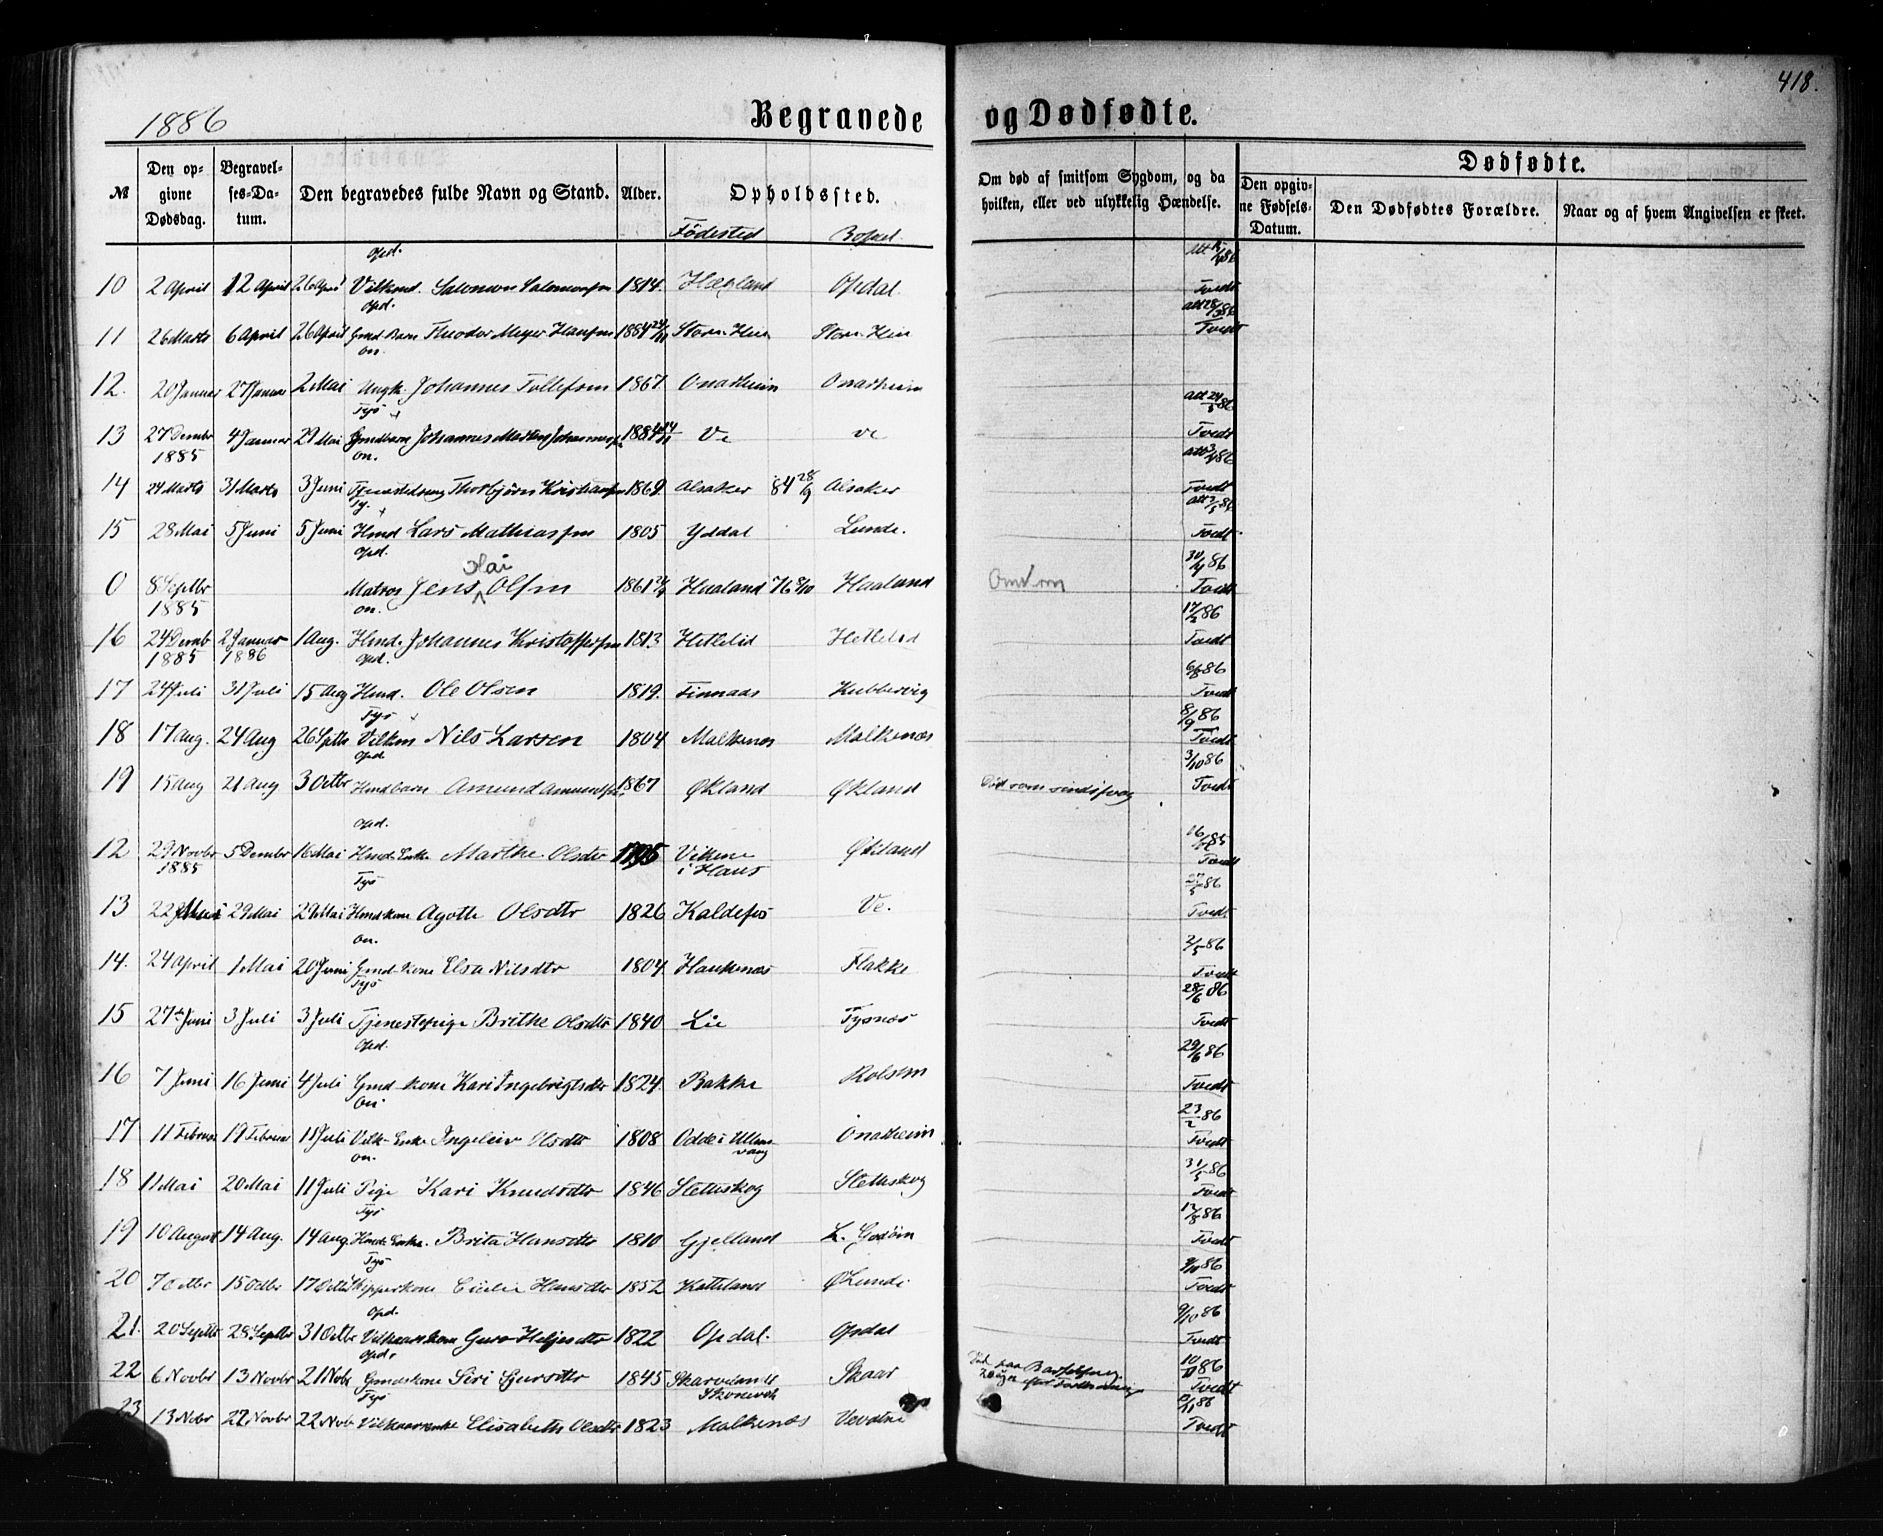 418.
1886 Begravede og Dødfødte.
№ Den opgivne Dødsdag. Begravelses-Datum. Den begravedes fulde Navn og Stand. Alder. Opholdssted. Om død af smitsom Sygdom, og da hvilken, eller ved ulykkelig Hændelse. Dødfødte.
Den opgivne Fødsels-Datum. Den Dødfødtes Forældre. Naar og af hvem Angivelsen er skeet.
Fødested Bopæl
Opd.
10 2 April 12 April 26 April Vilkmd. Salomon Salomonsen 1814. Opdal. Tvedt
Opd.
11 26 Marts 6 April 26 April Gmd. Barn Theodor Meyer Hansen 1884 Tvedt
On.
12. 20 Januar 27 Januar 2 Mai Ungk. Johannes Tollefsen 1867 Onarheim Onarheim
Tys
13 27 Dembr 1885 4 Januar 29 Mai Johannes 1884 Ve Ve Tvedt
On.
14 24 Marts 31 Marts 3 Juni Thorbjørn Kristiansen 1869 Alsaker 84 28/9 Alsaker Tvedt
Ty.
15 28 Mai 5 Juni 5 Juni Hmd Lars Mathiassen 1805 Yddal Lunde. Tvedt
Opd.
0 8 Septbr 1885 Matros Jens Kai Olsen 1861 Haaland 76 8/10 Haaland 30/4 86 Tvedt
On.
16 24 Dembr 1885 2 Januar 1886 1 Aug. Hmd. Johannes Kristoffersen 1813 Hetlelid Hetlelid 17/2 86 Tvedt
Opd.
17 24 Juli 31 Juli 15 Aug Hmd. Ole Olsen 1819. Finnaas Kubbervig 86 Tvedt
Tys
18 17 Aug. 24 Aug 26 Septbr Nils Larsen 1804 Malkenæs Malkenæs 8/9 86 Tvedt
Opd.
19 15 Aug 21 Aug 3 Octbr Hmdbarn Amund Amundsen 1867 Økland Økland Død som sindssvag 3/10 86 Tvedt
Opd.
12 29 Novbr 1885 5 Dembr 16 Mai Hmd. Enke Marthe Olsdtr 1795 Vikene i Haus Økland 85 Tvedt
Tys
13 22 Mai 29 Mai 29 Mai Hmdkone Agathe Olsdtr 1826 Kaldefos Ve. 27/5 86 Tvedt
On.
14. 24 April 1 Mai 20 Juni Gmd. kone Elsa Nilsdtr 1804 Haukenæs Flakke 2/5 86 Tvedt
Tys
15 27 Juni 3 Juli 3 Juli Tjenestepige Brithe Olsdtr 1840 Lie Tysnæs 28/6 86 Tvedt
Opd.
16 7 Juni 16 Juni 4 Juli Gmd kone Kari Ingebrigtsdtr 1824. Bakke Rolsvn 29/6 86 Tvedt
On.
17 11 Februar 19 Februar 11 Juli Vilk. Enke Ingeleiv Olsdtr 1808 Odde i Ullensvang Onarheim 23/2 86 Tvedt
On.
18 11 Mai 20 Mai 11 Juli Pige Kari Knudsdtr 1846 Sletteskog Sletteskog 31/5 86 Tvedt
Tys
19 10 August 14 Aug. 14 Aug. Hmd. Enke. Brita Hansdtr 1810 Gjelland L. Godøen 86 Tvedt
Tys
20 7 Octbr 15 Octbr 17 Octbr Skipperkone Cicilie Hansdtr 1852 Katteland Ø Lunde 9/10 86 Tvedt
Opd.
21. 20 Septbr 28 Septbr 31 Octbr Vilkaarskone Guro Helgesdtr 1822 Opdal. Opdal 9/10 86 Tvedt
Opd.
22 6 Novbr 13 Novbr 21 Novbr Gmdskone Siri Sjursdtr 1845 Skaar Død paa Barselseng 10/11 86 Tvedt
Tys
23 13 Nobr 22 Novbr 22 Nov Vilkaarsenke Elisabeth Olsdtr 1823 Malkenæs 86 Tvedt